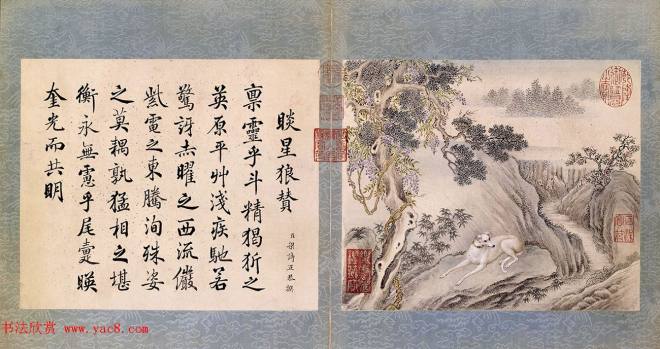 睒星狼贊
臣梁詩正恭撰
禀靈乎斗精猲狾之
英原平艸淺疾馳若
驚訝赤曜之西流儼
紫電之東騰洵殊姿
之莫耦孰猛相之堪
衡永無慮乎尾疐暎
奎光而共明
书法欣赏 www.yac8.com